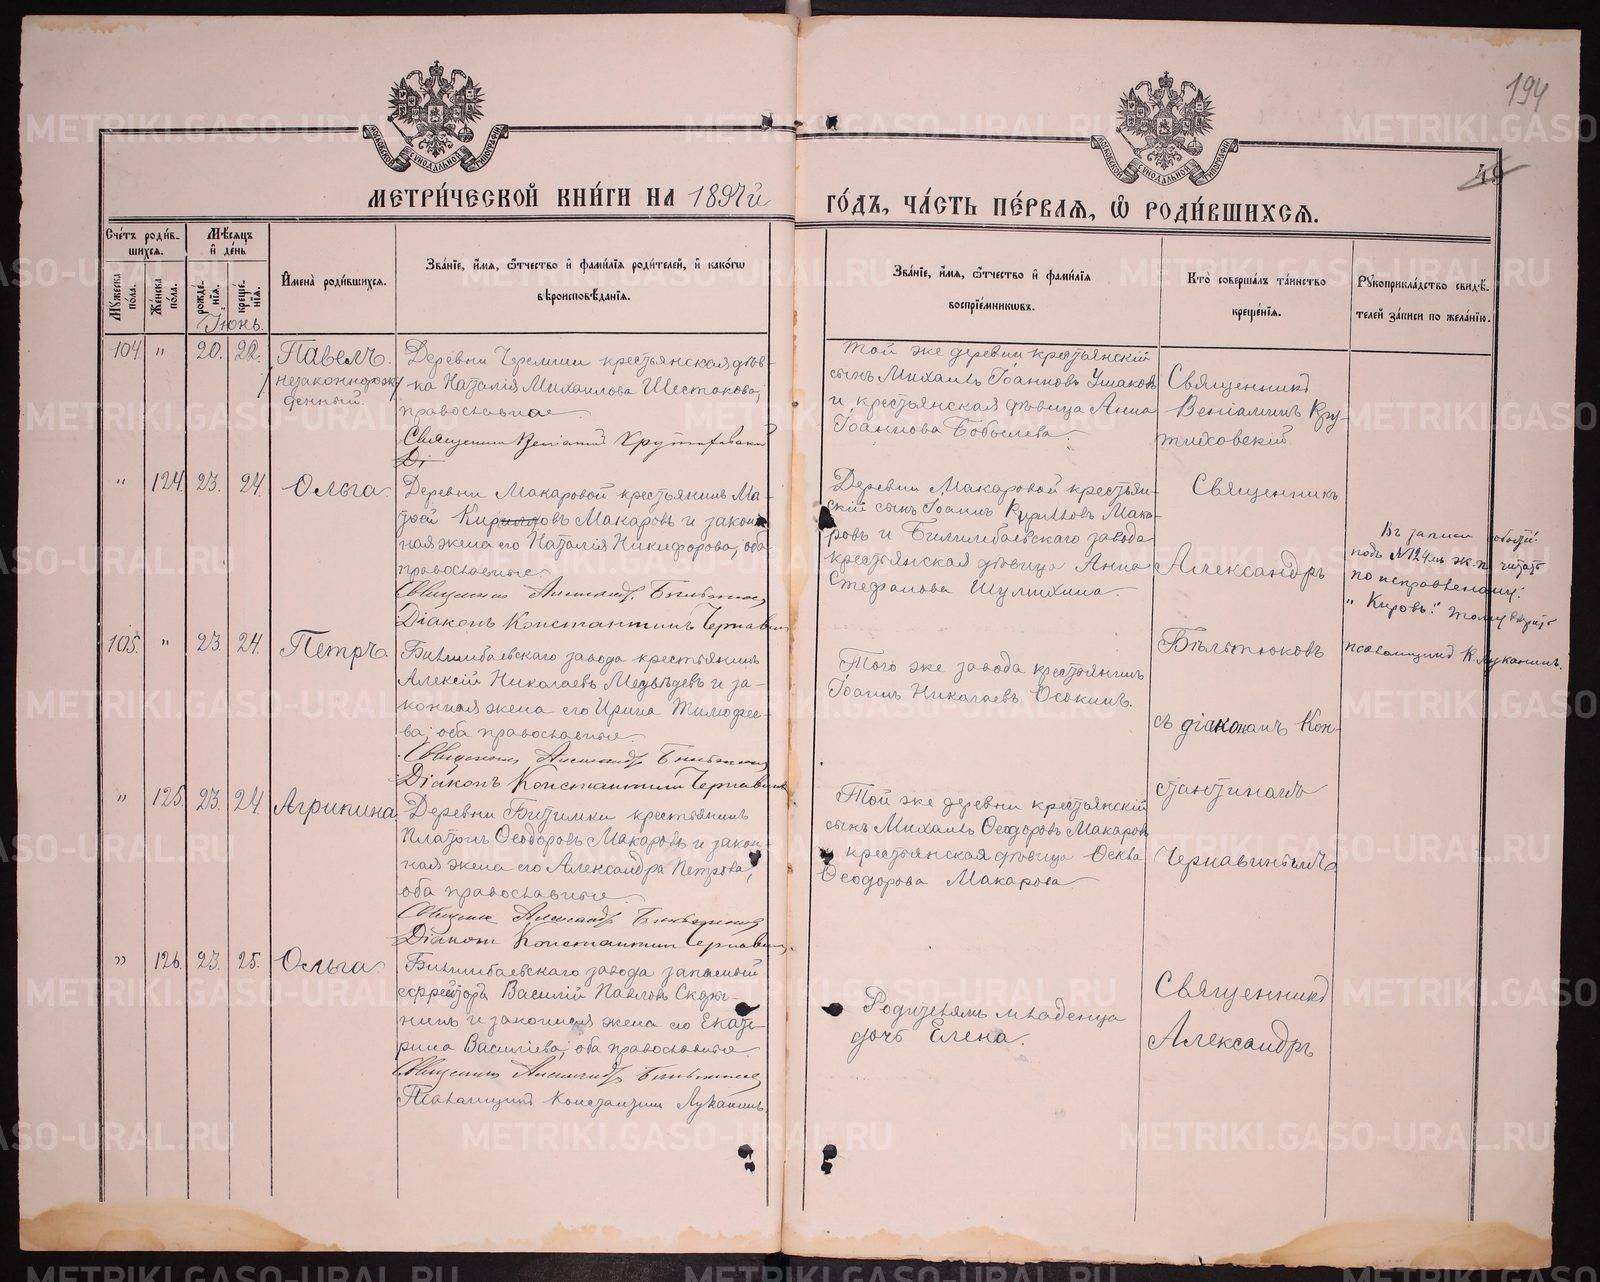 194
МОСКОВСКОЙ СѴНОДАЛЬНОЙ ТИПОГРАФІИ
МОСКОВСКОЙ СѴНОДАЛЬНОЙ ТИПОГРАФІИ
МЕТРИ́ЧЕСКОЙ КНИ́ГИ НА 1897й
ГО́ДЪ, ЧА́СТЬ ПЕ́РВАѦ, Ѽ РОДИ́ВШИХСѦ.
Сче́тъ роди́в-
шихся.
Мѣ́сяцъ
и҆ де́нь
Му́жеска по́ла.
Же́нска по́ла.
рожде́нїя.
креще́нїя.
И҆мена̀ роди́вшихся.
Зва́нїе, и҆́мя, ѻ҆́тчество и҆ фами́лїя роди́телей, и҆ како́гѡ
вѣроисповѣ́данїя.
Зва́нїе, и҆́мя, ѻ҆́тчество и҆ фами́лїя
воспрїе́мниковъ.
Кто̀ соверша́лъ та́инство
креще́нїя.
Рꙋкоприкла́дство свидѣ́-
телей за́писи по жела́нїю.
Іюнь.
104 " 20. 22. Павелъ
незаконнорож-
денный.
Деревни Черемши крестьянская дѣв-
ка Наталія Михаилова Шестакова,
православная
Священникъ Веніаминъ
Той же деревни крестьянскій
сынъ Михаилъ Іоанновъ Ушаковъ
и крестьянская дѣвица Анна
Іоаннова Бобылева.
Священникъ
Веніаминъ Кру-
тиховскій
" 124 23. 24. Ольга
Деревни Макаровой крестьянинъ Ма-
Макаровъ и закон-
ная жена его Наталія Никифорова, оба
православные
Священникъ Александръ
Діаконъ Константинъ Чернавинъ
Деревни Макаровой крестьян-
скій сынъ Іоаннъ Мака-
ровъ и Билимбаевскаго завода
крестьянская дѣвица Анна
Стефанова Шулихина.
Священникъ
Александръ
Въ записи
подъ №124 ж. п. читать
по исправленному:
„Кировъ."
псаломщикъ К. Луканинъ.
105. " 23. 24. Петръ
Билимбаевскаго завода крестьянинъ
Алексій Николаевъ Медвѣдевъ и за-
конная жена его Ирина Тимофее-
ва; оба православные
Священникъ Александръ
Діаконъ Константинъ Чернавинъ
Того же завода крестьянинъ
Іоаннъ Николаевъ Осокинъ.
Бѣльтюковъ
съ діакономъ Кон-
" 125. 23. 24. Агрипина
Деревни Битимки крестьянинъ
Платонъ Ѳеодоровъ Макаровъ и закон-
ная жена его Александра Петрова,
оба православные
Священникъ Александръ
Діаконъ Константинъ Чернавинъ
Той же деревни крестьянскій
сынъ Михаилъ Ѳеодоровъ Макаровъ
крестьянская дѣвица
Ѳеодорова Макарова
стантиномъ
Чернавинымъ
" 126. 23. 25. Ольга
Билимбаевскаго завода запасный
ефрейторъ Василій Павловъ
и законная жена его Екате-
рина Василіева; оба православные
Священникъ Александръ
Псаломщикъ Константинъ Луканинъ
Родителямъ младенца
дочь Елена.
Священникъ
Александръ
METRIKI.GASO-URAL.RU